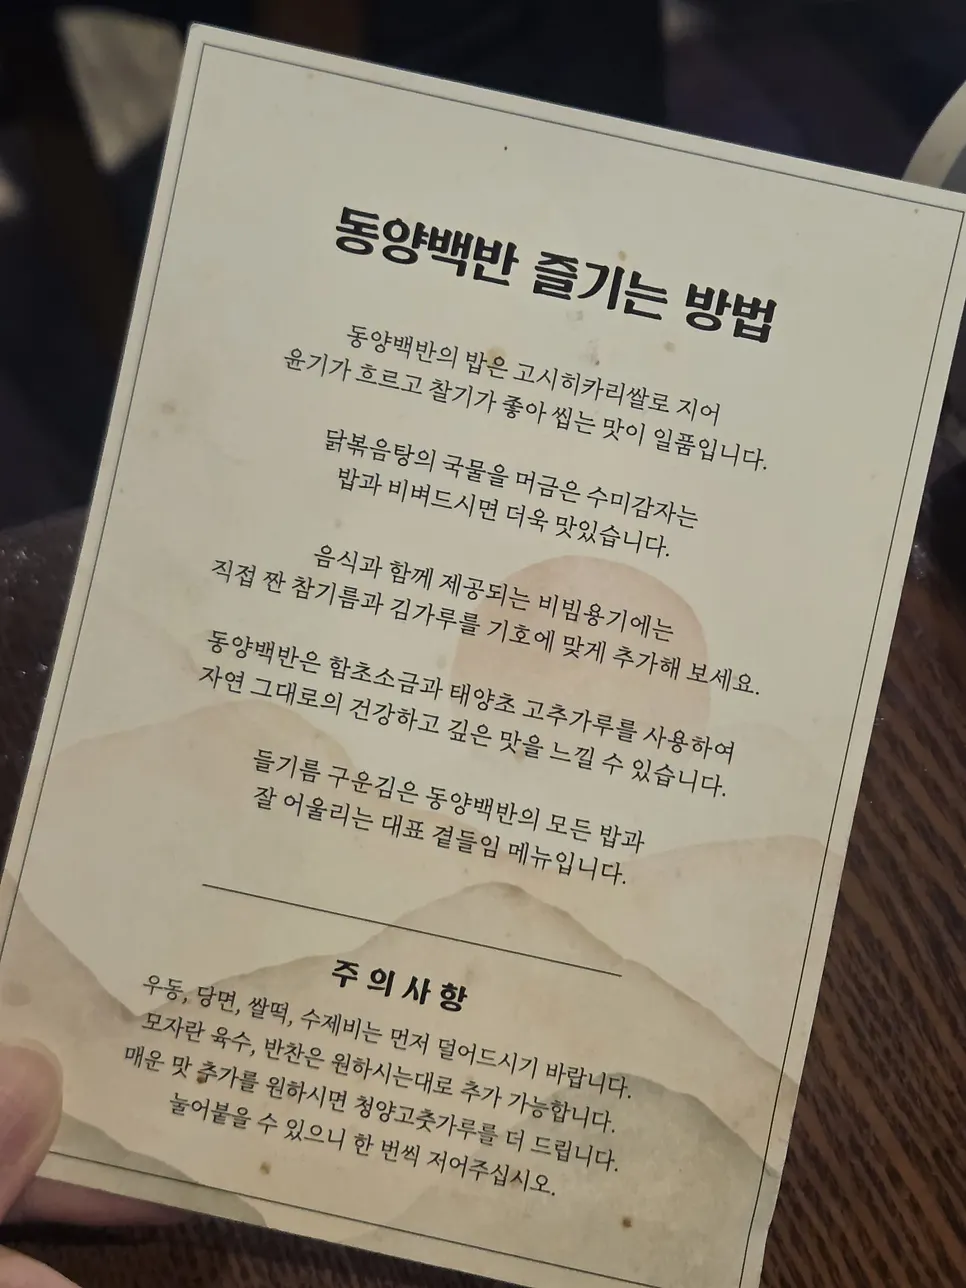 동양백반 즐기는 방법
동양백반의 밥은 고시히카리쌀로 지어
윤기가 흐르고 찰기가 좋아 씹는 맛이 일품입니다.
닭볶음탕의 국물을 머금은 수미감자는
밥과 비벼드시면 더욱 맛있습니다.
음식과 함께 제공되는 비빔용기에는
직접 짠 참기름과 김가루를 기호에 맞게 추가해 보세요.
동양백반은 함초소금과 태양초 고추가루를 사용하여
자연 그대로의 건강하고 깊은 맛을 느낄 수 있습니다.
들기름 구운김은 동양백반의 모든 밥과
잘 어울리는 대표 곁들임 메뉴입니다.
주의사항
우동, 당면, 쌀떡, 수제비는 먼저 덜어드시기 바랍니다.
모자란 육수, 반찬은 원하시는대로 추가 가능합니다.
매운 맛 추가를 원하시면 청양고춧가루를 더 드립니다.
눌어붙을 수 있으니 한 번씩 저어주십시오.